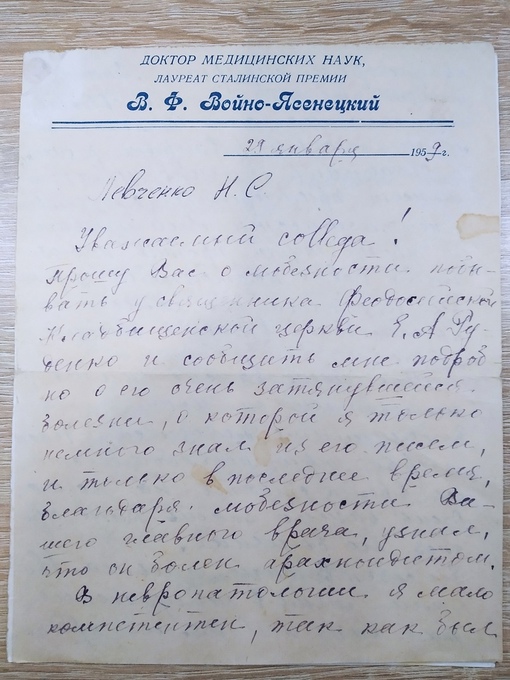 ДОКТОР МЕДИЦИНСКИХ НАУК,
ЛАУРЕАТ СТАЛИНСКОЙ ПРЕМИИ
В. Ф. Войно-Ясенецкий
29 января 1959 г.
Левченко Н. С.
Уважаемый collega!
Прошу Вас о любезности побы-
вать у священника Феодосийской
Кладбищенской церкви Е. А. Ру-
денко и сообщить мне подроб-
но о его очень затянувшейся
болезни, о которой я только
немного знал из его писем,
и только в последнее время,
благодаря любезности Ва-
шего главного врача, узнал,
что он болен арахноидитом.
В невропатологии я мало
компетентен, так как был